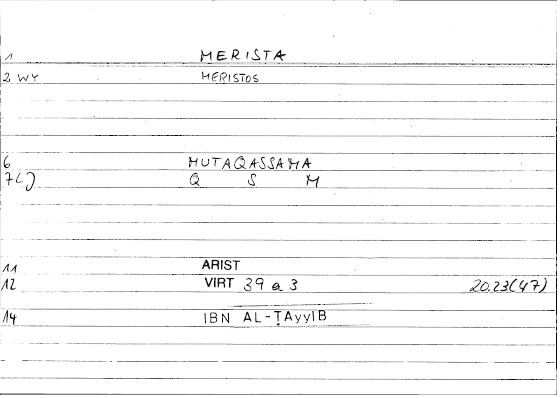 1 MERISTA
2 WY MERISTOS
6 MUTAQASSAMA
7 Q S M
11 ARIST
12 VIRT 39 a 3 20.23(47)
14 IBN AL-ṬAyyIB